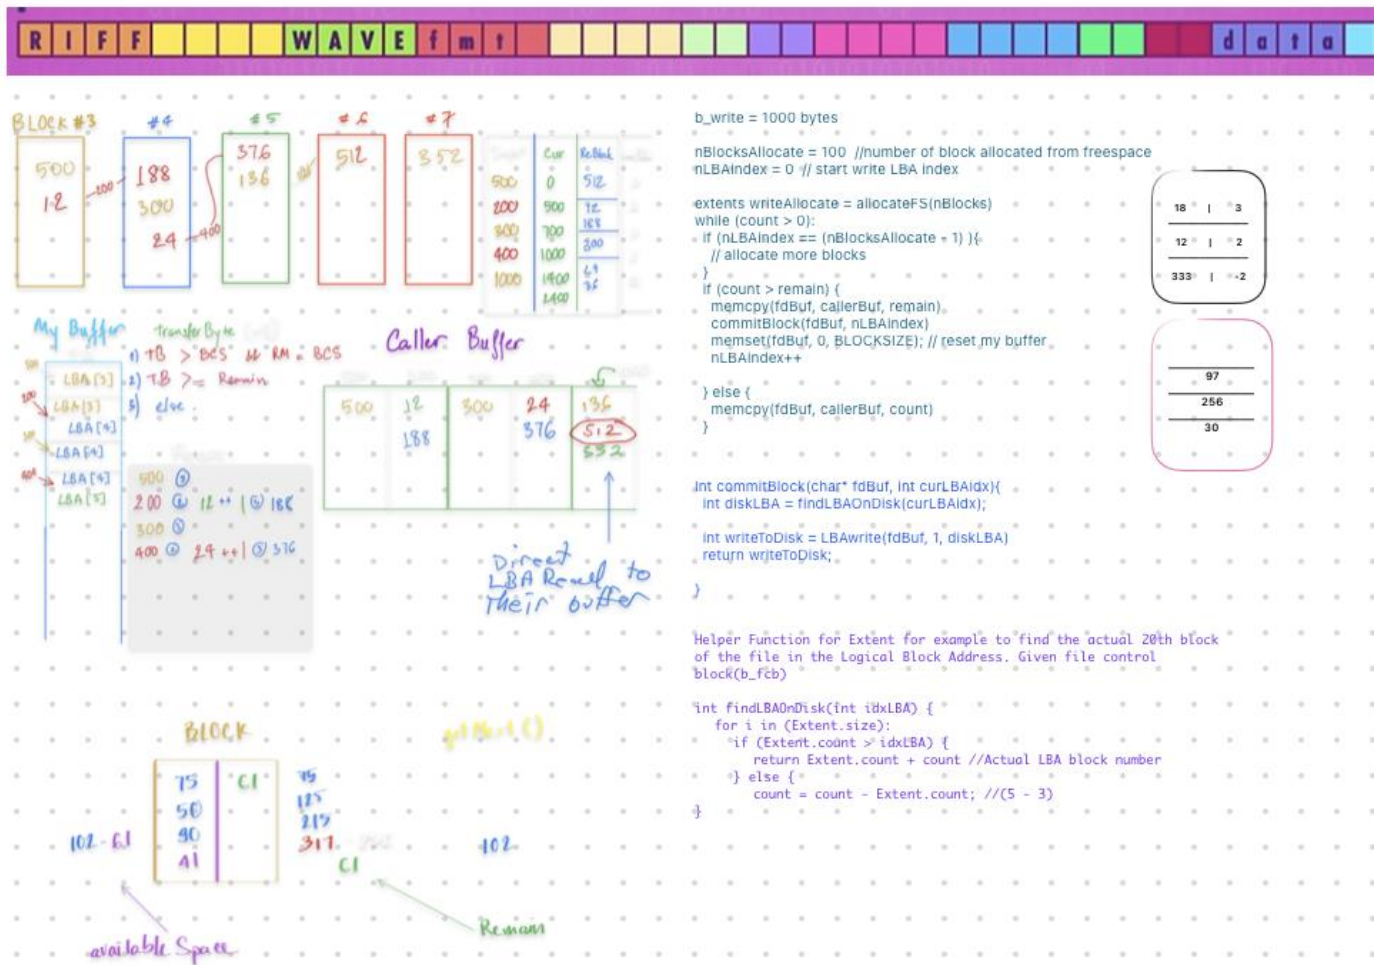 RIFF WAVE fmt data
BLOCK #3 #4 #5 #6 #7
500
12
200
188
300
24
400
376
136
512
352
Cur
500 0 512
200 500 12
188
300 700 300
400 1000
1000 1400
2400
My Buffer
LBA[3]
LBA[3]
LBA[4]
LBA[4]
LBA[4]
LBA[5]
Transfer Byte
2) TB >= Remain
3) else.
500
200 12 ++ 188
300
400 24 ++ 376
Caller Buffer
500 12 300 24 136
188 376 512
Direct
to
Their buffer
BLOCK
75
50
90
41
75
125
215
317
102
102
available Space
Remain
b_write = 1000 bytes
nBlocksAllocate = 100 //number of block allocated from freespace
nLBAindex = 0 // start write LBA index
extents writeAllocate = allocateFS(nBlocks)
while (count > 0):
if (nLBAindex == (nBlocksAllocate - 1) ){
// allocate more blocks
}
if (count > remain) {
memcpy(fdBuf, callerBuf, remain)
commitBlock(fdBuf, nLBAindex)
memset(fdBuf, 0, BLOCKSIZE); // reset my buffer
nLBAindex++
} else {
memcpy(fdBuf, callerBuf, count)
}
int commitBlock(char* fdBuf, int curLBAidx){
int diskLBA = findLBAOnDisk(curLBAidx);
int writeToDisk = LBAwrite(fdBuf, 1, diskLBA)
return writeToDisk;
}
Helper Function for Extent for example to find the actual 20th block
of the file in the Logical Block Address. Given file control
block(b_fcb)
int findLBAOnDisk(int idxLBA) {
for i in (Extent.size):
if (Extent.count > idxLBA) {
return Extent.count + count //Actual LBA block number
} else {
count = count - Extent.count; //(5 - 3)
}
18 | 3
12 | 2
333 | -2
97
256
30